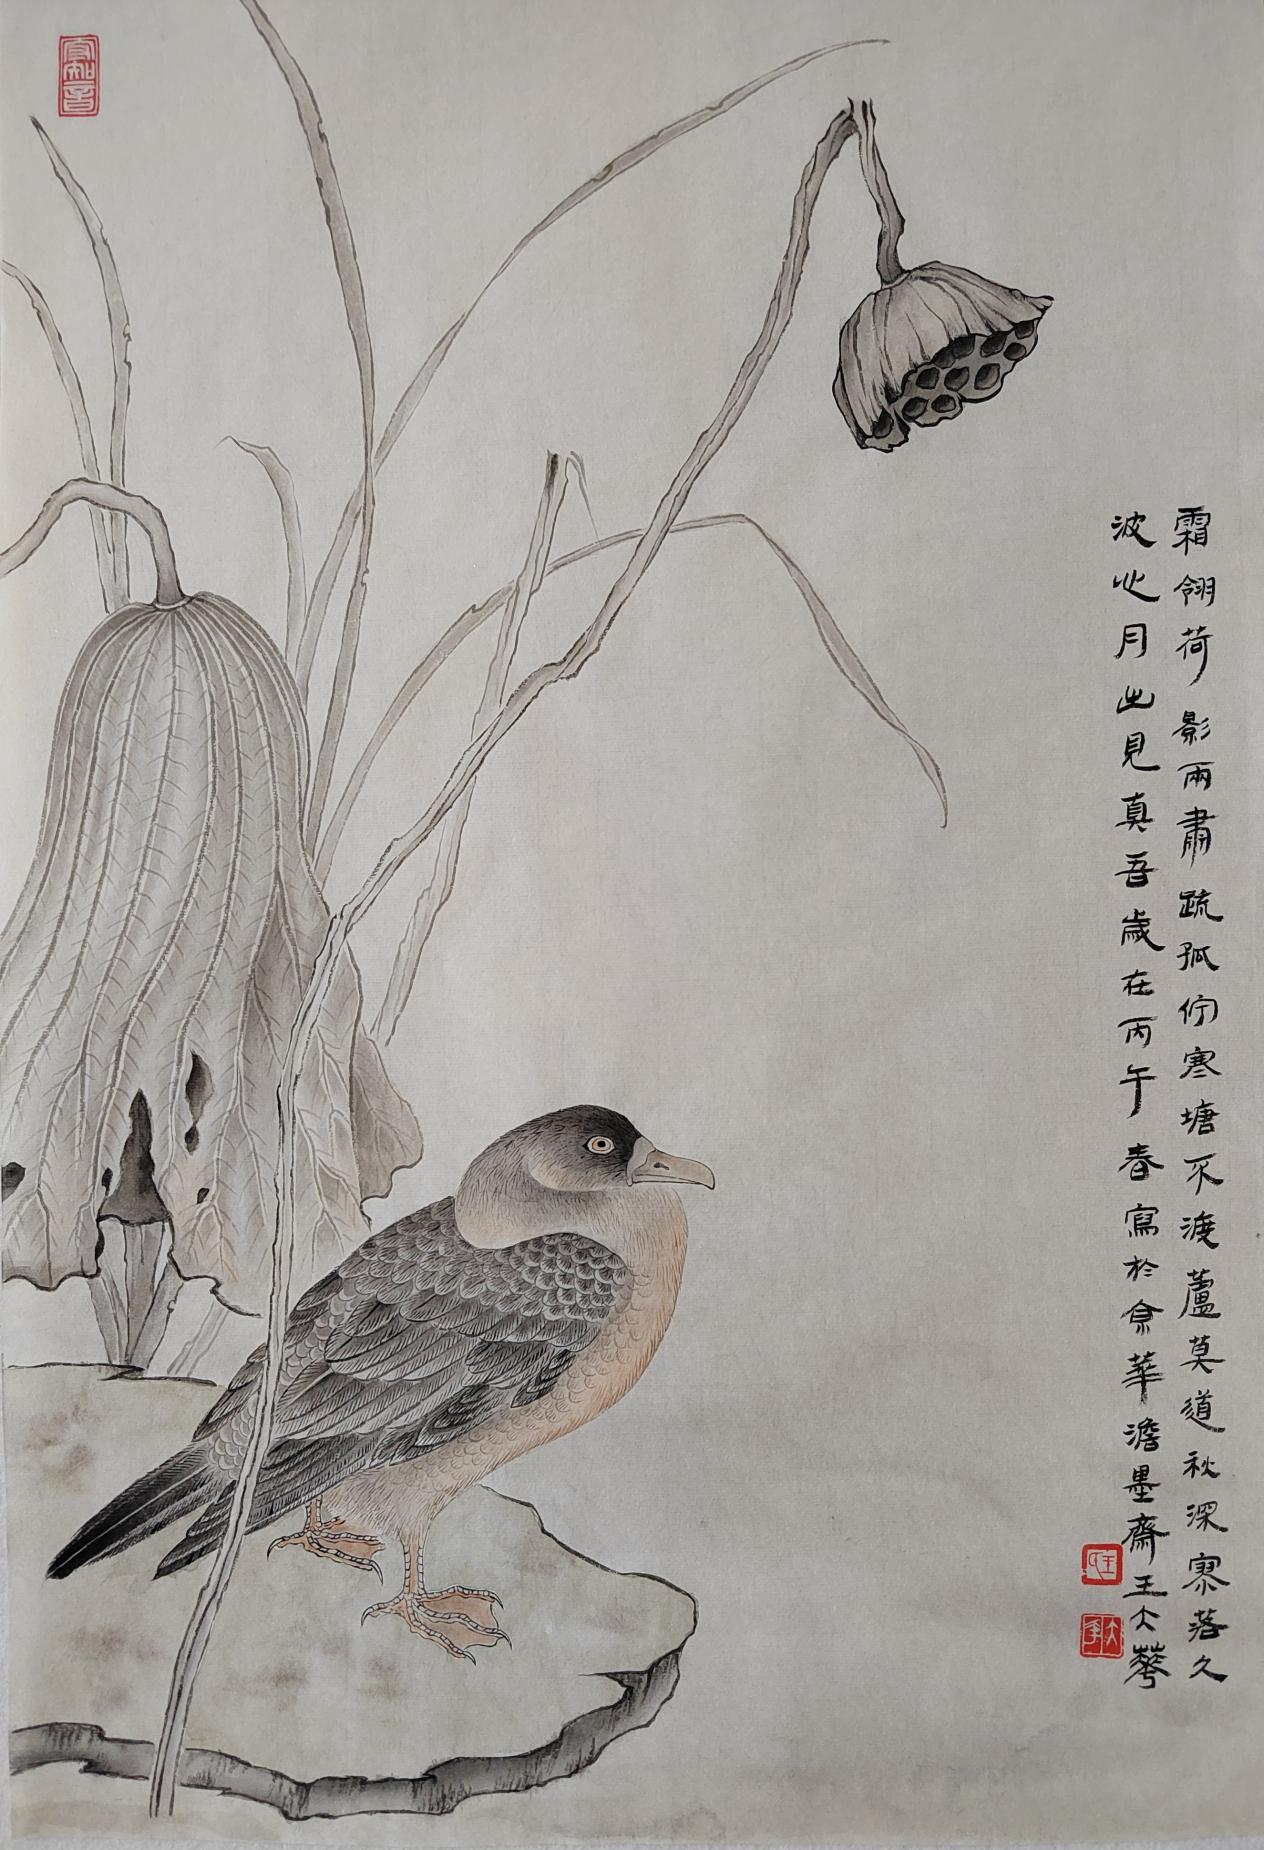 霜翎荷影兩肅疏孤佇寒塘不渡蘆莫道秋深寥落久
波心月出見真吾歲在丙午春寫於余華澹墨齋王大華